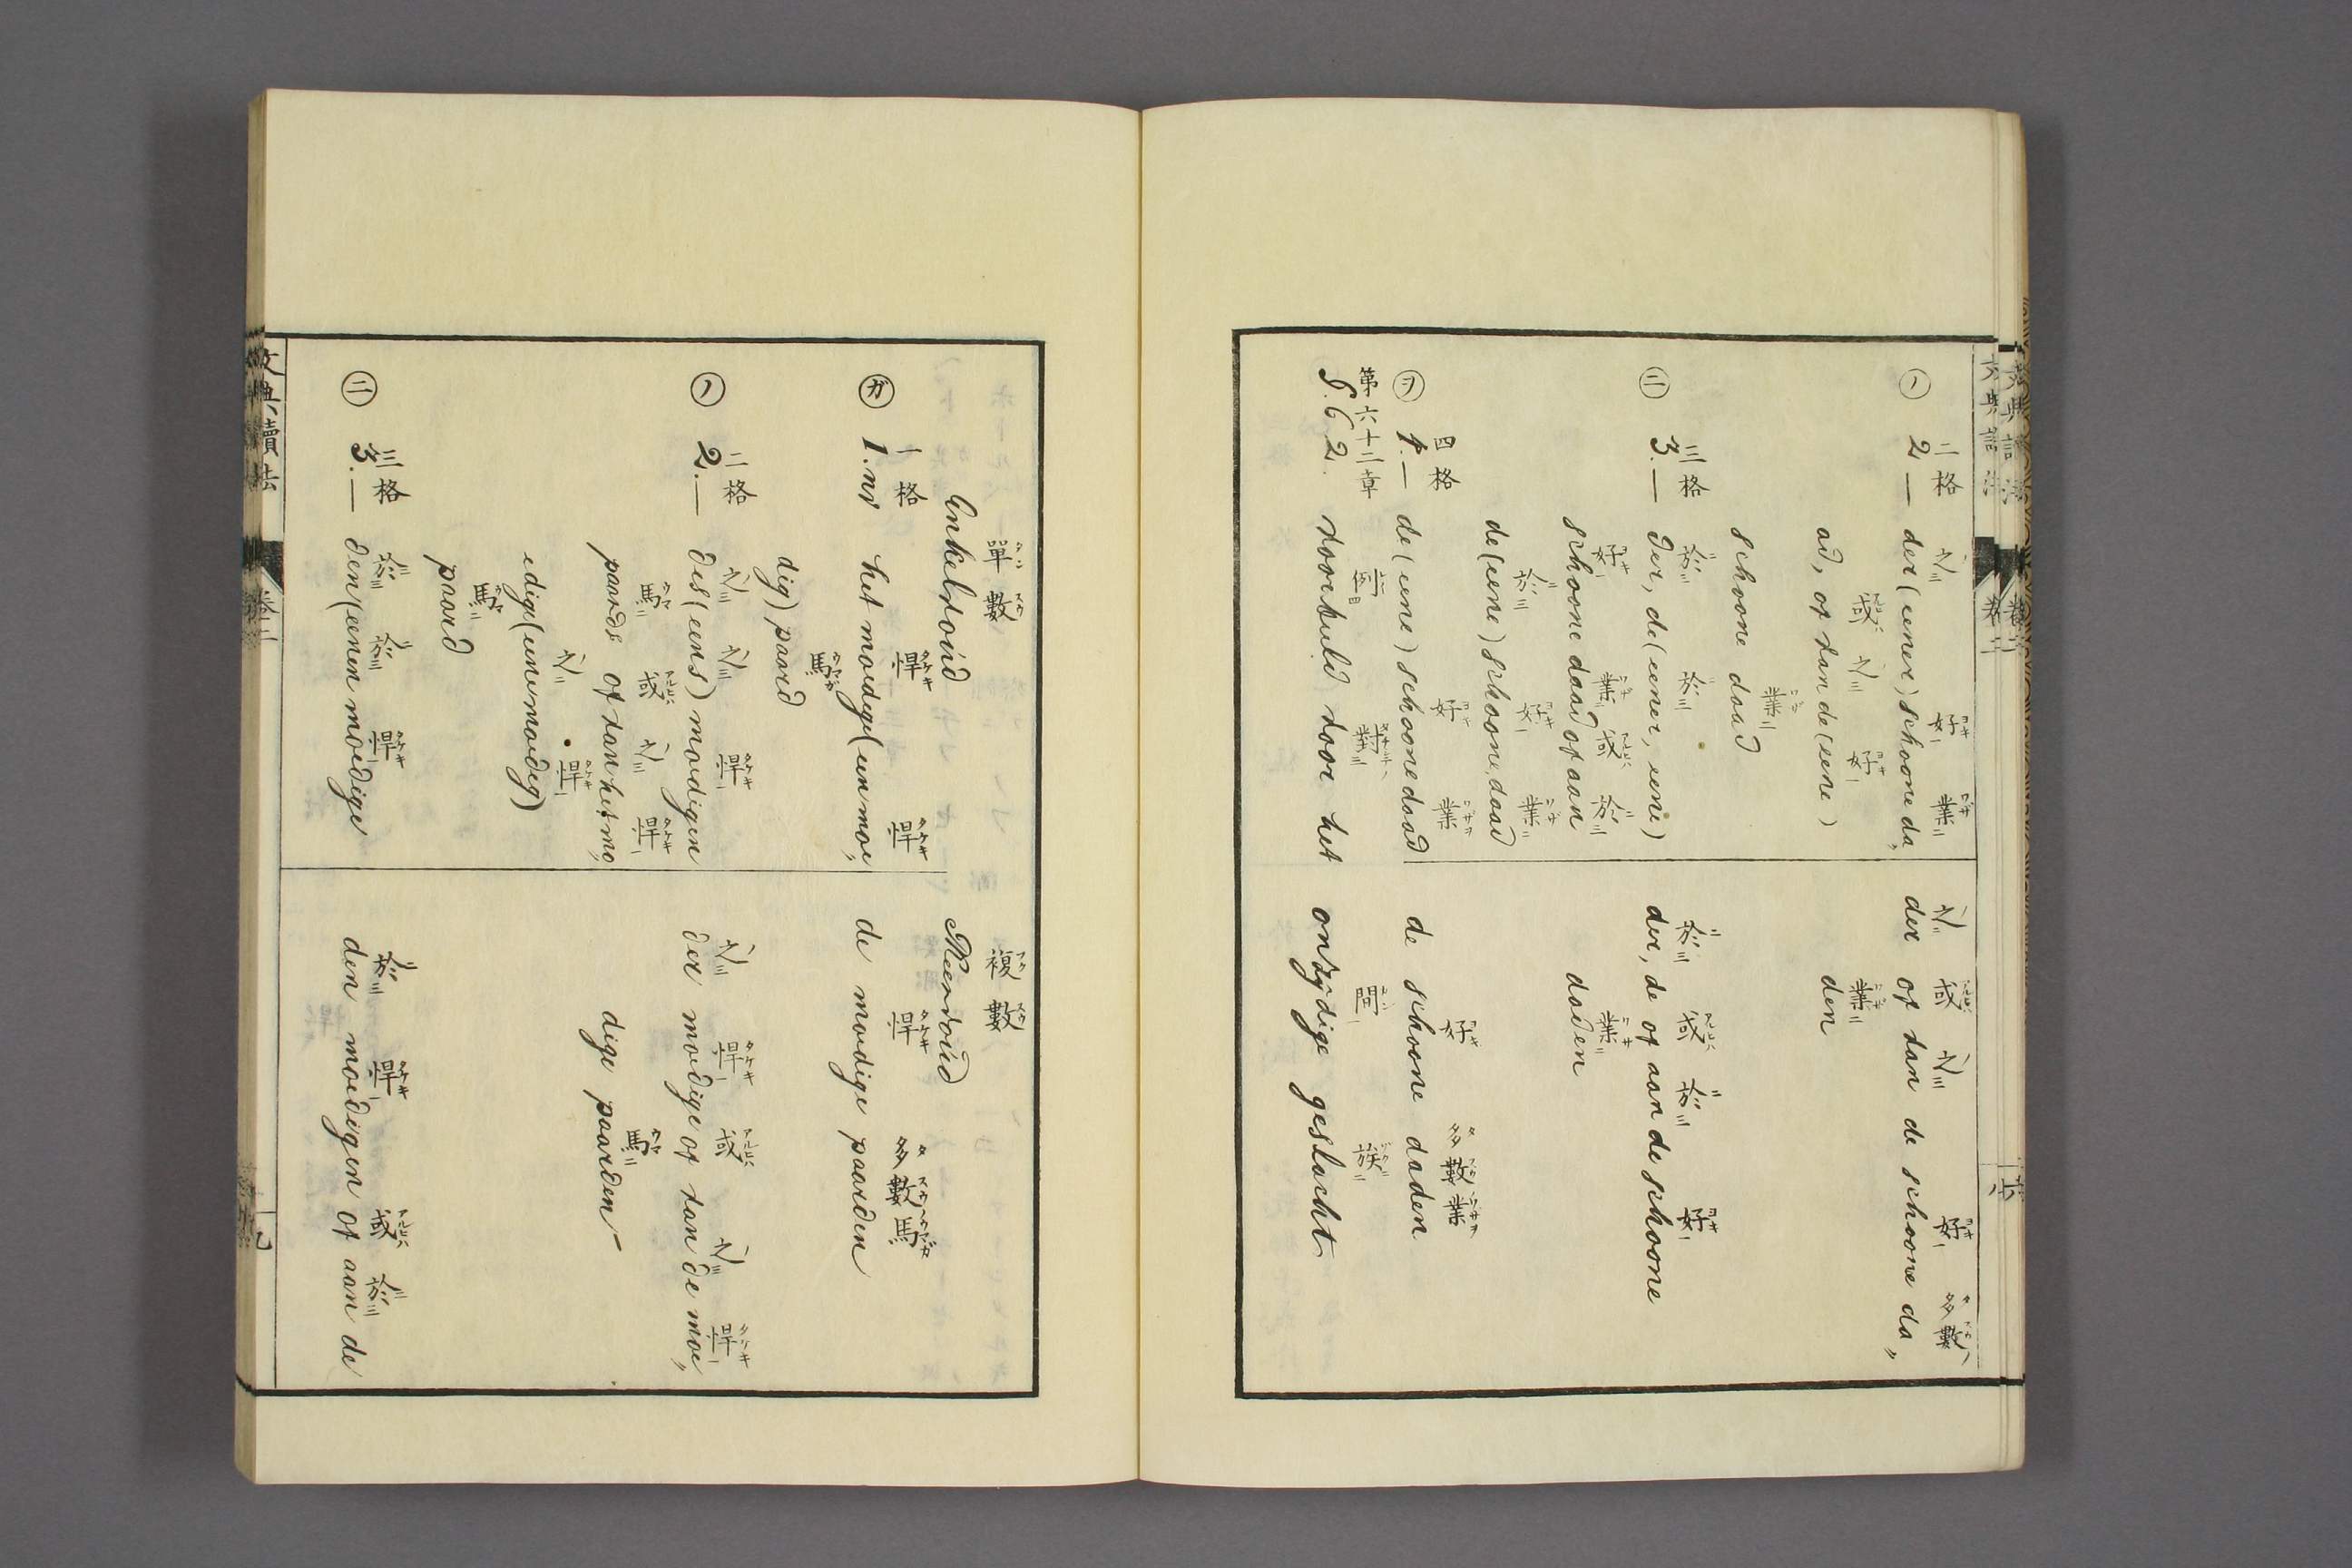 二格 之 好 業
2 — der (eener) schoone da„
或 之 好
ad, of van de (eene)
業
schoone daad
三格 於 於
3. — der, de (eener, eene)
好 業 或 於
schoone daad of aan
於 好 業
de (eene) schoone daad
四格 好 業
4. — de (eene) schoone daad
之 或 之 好 多數
der of van de schoone da„
業
den
於 或 於 好
der, de of aan de schoone
業
daden
好 多數 業
de schoone daden
第六十二章 例 對 間 族
§. 62. voorbeeld voor het onzijdige geslacht
文典讀法
卷二
單數
Enkelvoúd
一格 悍 悍
1. nv het moedige (een moe„
馬
dig) paard
二格 之 之 悍
2. — des (eens) moedigen
馬 或 之 悍
paards of van het mo„
之 悍
edige (een moedig)
馬
paard
三格 於 於 悍
3. — den (eenen moedige
複數
Meervoúd
悍 多數馬
de moedige paarden
之 悍 或 之 悍
der moedige of van de moe„
馬
dige paarden
於 悍 或 於
den moedigen of aan de
文典讀法
卷二
九